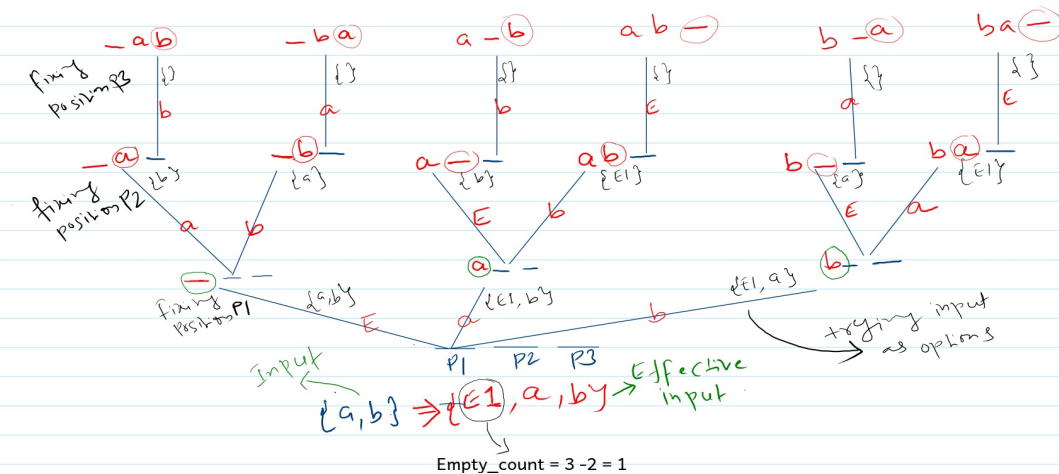 _ a b _ b a a _ b a b _ b _ a b a _
fixing position P3
{} {} {} {} {} {}
b a b E a E
_ a _ _ b _ a _ _ a b _ b _ _ b a _
{b} {a} {b} {E1} {a} {E1}
fixing position P2
a b E b E a
_ _ _ a _ _ b _ _
fixing position P1
{a,b} {E1, b} {E1, a}
E a b
trying input as options
P1 P2 P3
Input
Effective input
{a,b} ⇒ {E1, a, b}
Empty_count = 3 -2 = 1